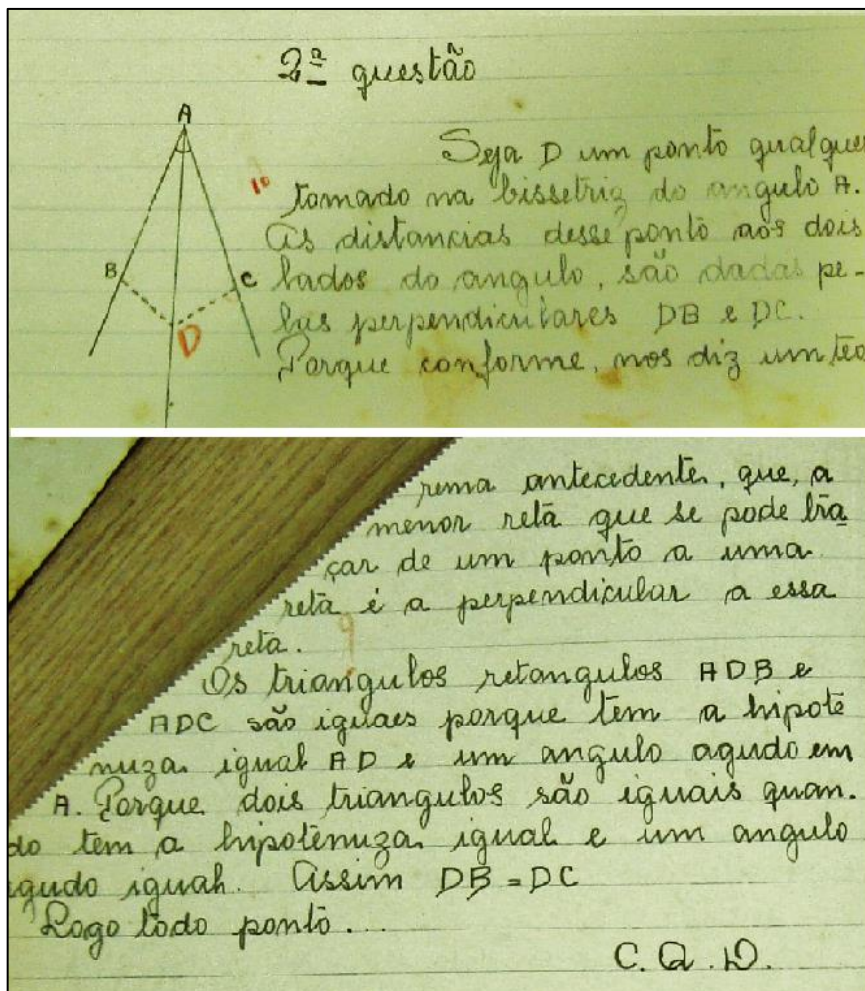 2ª questão
A
Seja D um ponto qualquer
10
tomado na bissetriz do angulo A.
As distancias desse ponto aos dois
B
C
lados do angulo, são dadas pe-
D
las perpendiculares DB e DC.
Porque conforme, nos diz um teo
rema antecedente, que, a
menor reta que se pode tra
çar de um ponto a uma
reta é a perpendicular a essa
reta.
Os triangulos retangulos ADB e
ADC são iguaes porque tem a hipote
nuza igual AD e um angulo agudo em
A. Porque dois triangulos são iguais quan.
do tem a hipotenuza igual e um angulo
agudo igual. Assim DB = DC
Logo todo ponto...
C. Q. D.